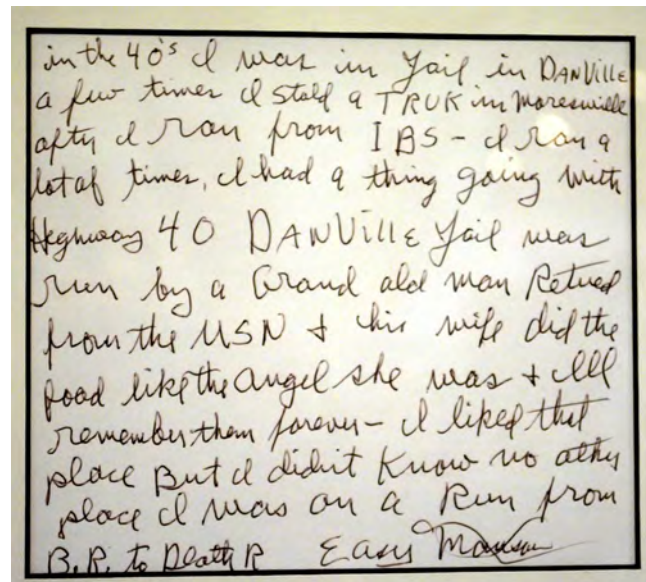 in the 40's I was in Jail in DANVILLE
a few times I stold a TRUK in Moresville
afty I ran from IBS - I ran a
lot of times, I had a thing going with
Heghway 40 DANVILLE Jail was
run by a Grand old man Retired
from the USN + his wife did the
food like the angel she was + Ill
remember them forever - I liked that
place But I didn't Know no other
place I was on a Run from
B.R. to Death R Easy Manson